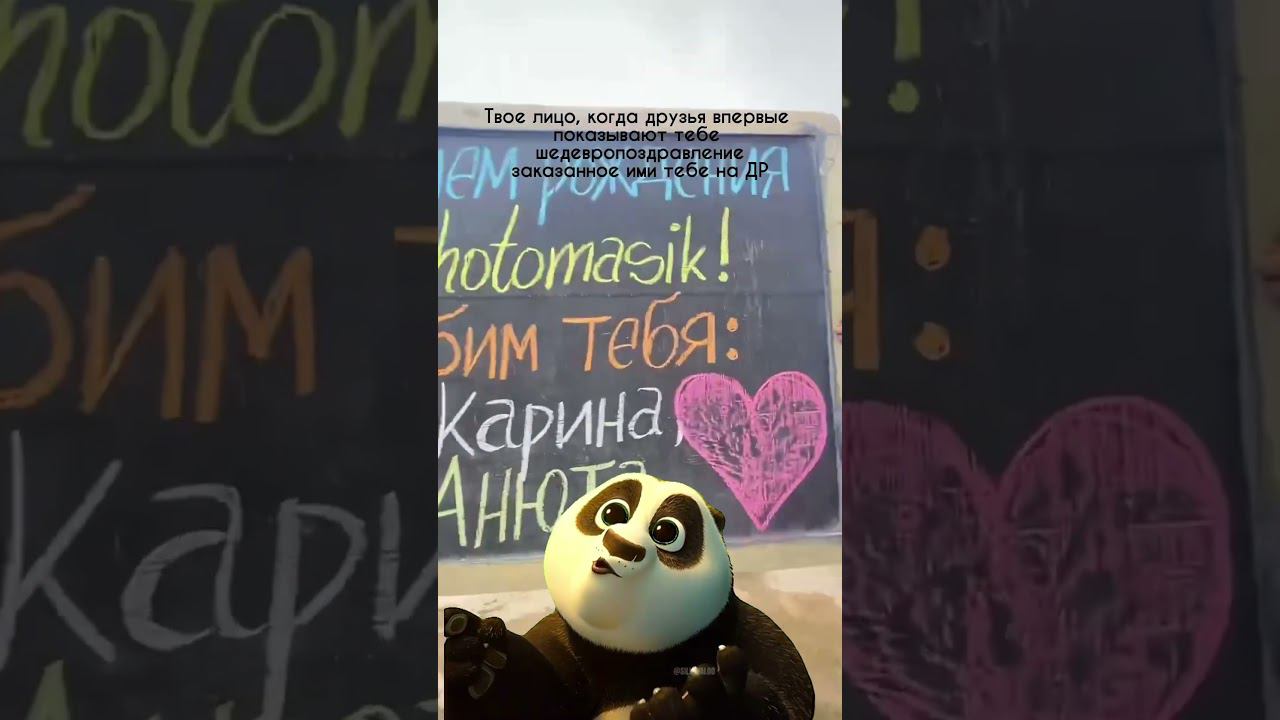 Твое лицо, когда друзья впервые
показывают тебе
шедевропоздравление
заказанное ими тебе на ДР
ем рождения
hotomasik!
бим тебя:
Карина,
Анюта